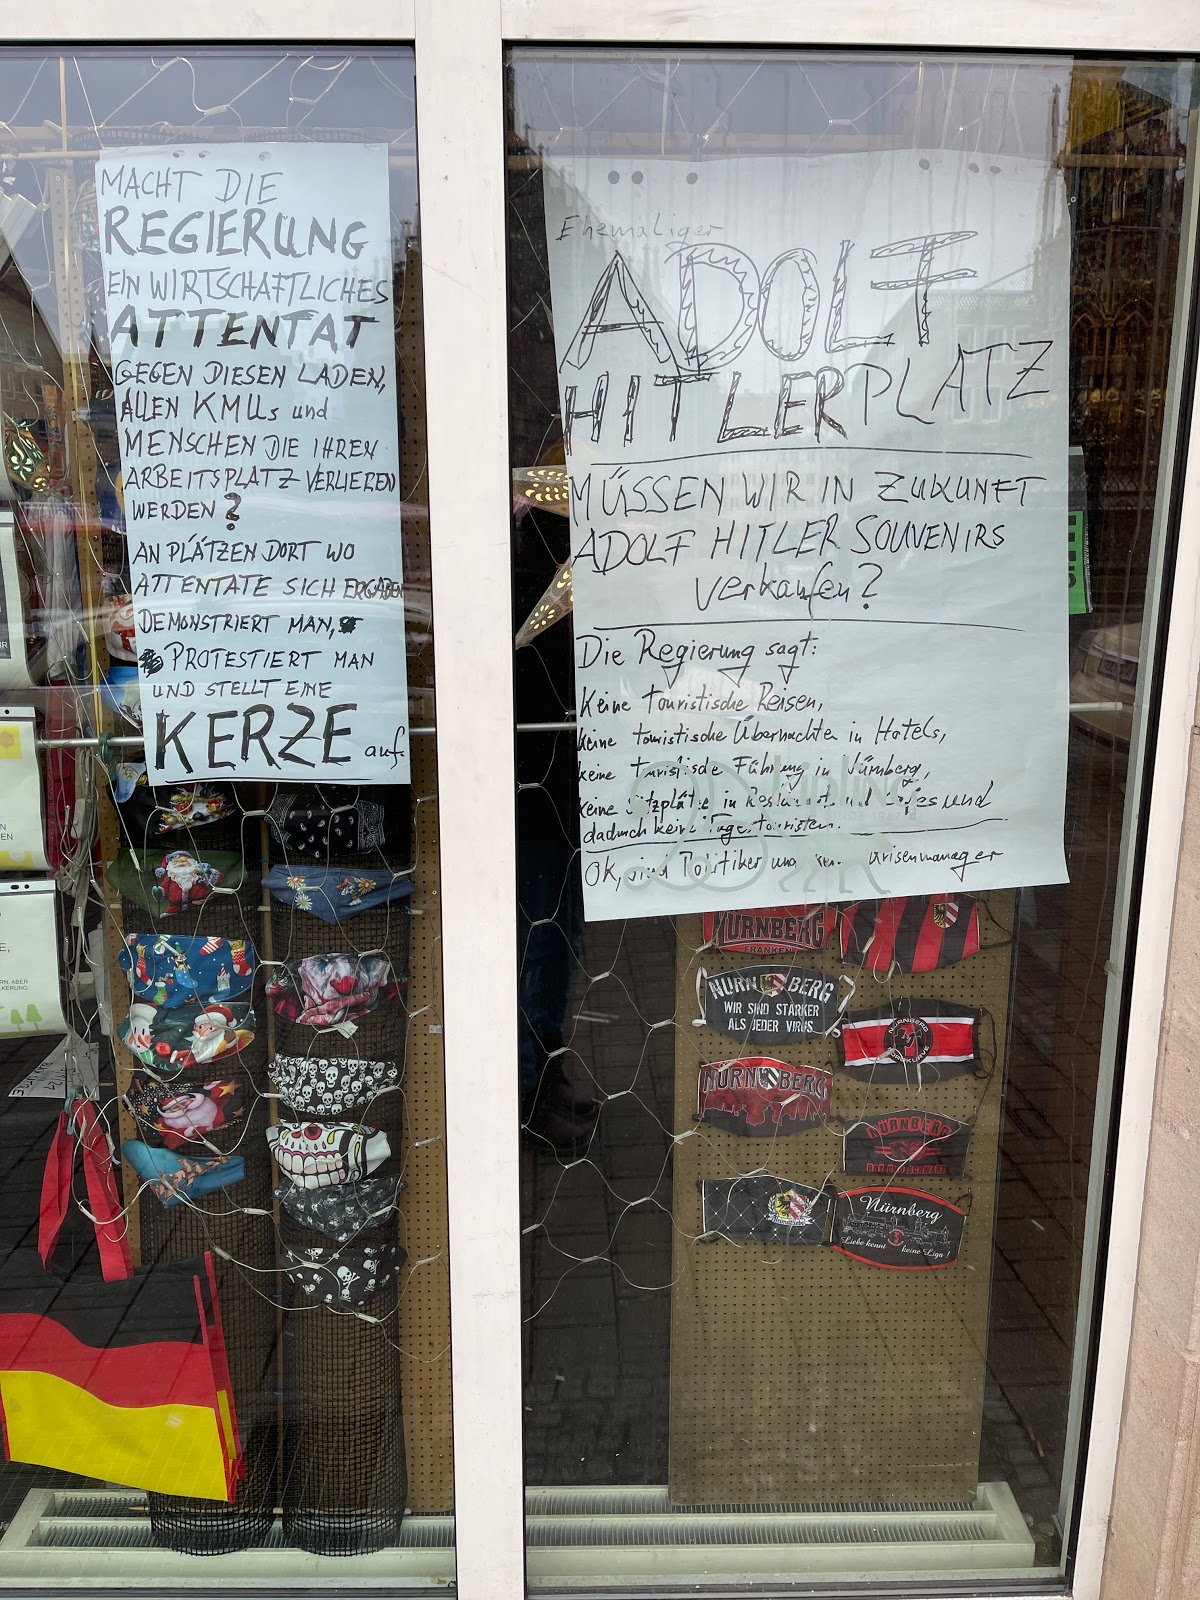 MACHT DIE
REGIERUNG
EIN WIRTSCHAFTLICHES
ATTENTAT
GEGEN DIESEN LADEN,
ALLEN KMUs und
MENSCHEN DIE IHREN
ARBEITSPLATZ VERLIEREN
WERDEN?
AN PLÄTZEN DORT WO
ATTENTATE SICH ERGABEN
DEMONSTRIERT MAN,
PROTESTIERT MAN
UND STELLT EINE
KERZE auf.
Ehemaliger
ADOLF
HITLERPLATZ
MÜSSEN WIR IN ZUKUNFT
ADOLF HITLER SOUVENIRS
verkaufen?
Die Regierung sagt:
Keine touristische Reisen,
keine touristische Übernachten in Hotels,
keine turistische Führung in Nürnberg,
keine Sitzplätze in Restaurant und Cafes und
dadurch keine Tagestouristen.
OK, sind Politiker und
NÜRNBERG
FRANKEN
NÜRNBERG
WIR SIND STÄRKER
ALS JEDER VIRUS
NÜRNBERG
NORDKURVE
NÜRNBERG
NÜRNBERG
ROT UND SCHWARZ
Nürnberg
Liebe kennt keine Liga!